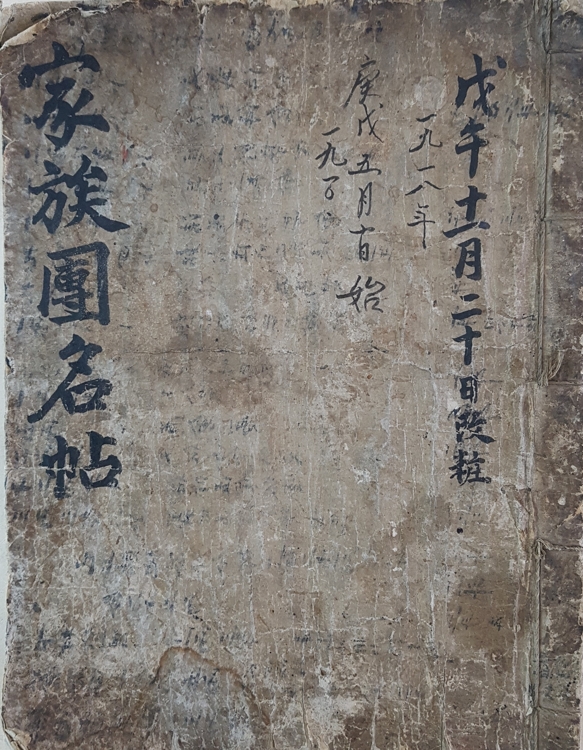 戊午十一月二十日粧
一九一八年
庚戌五月十日始
一九一〇
家族團名帖